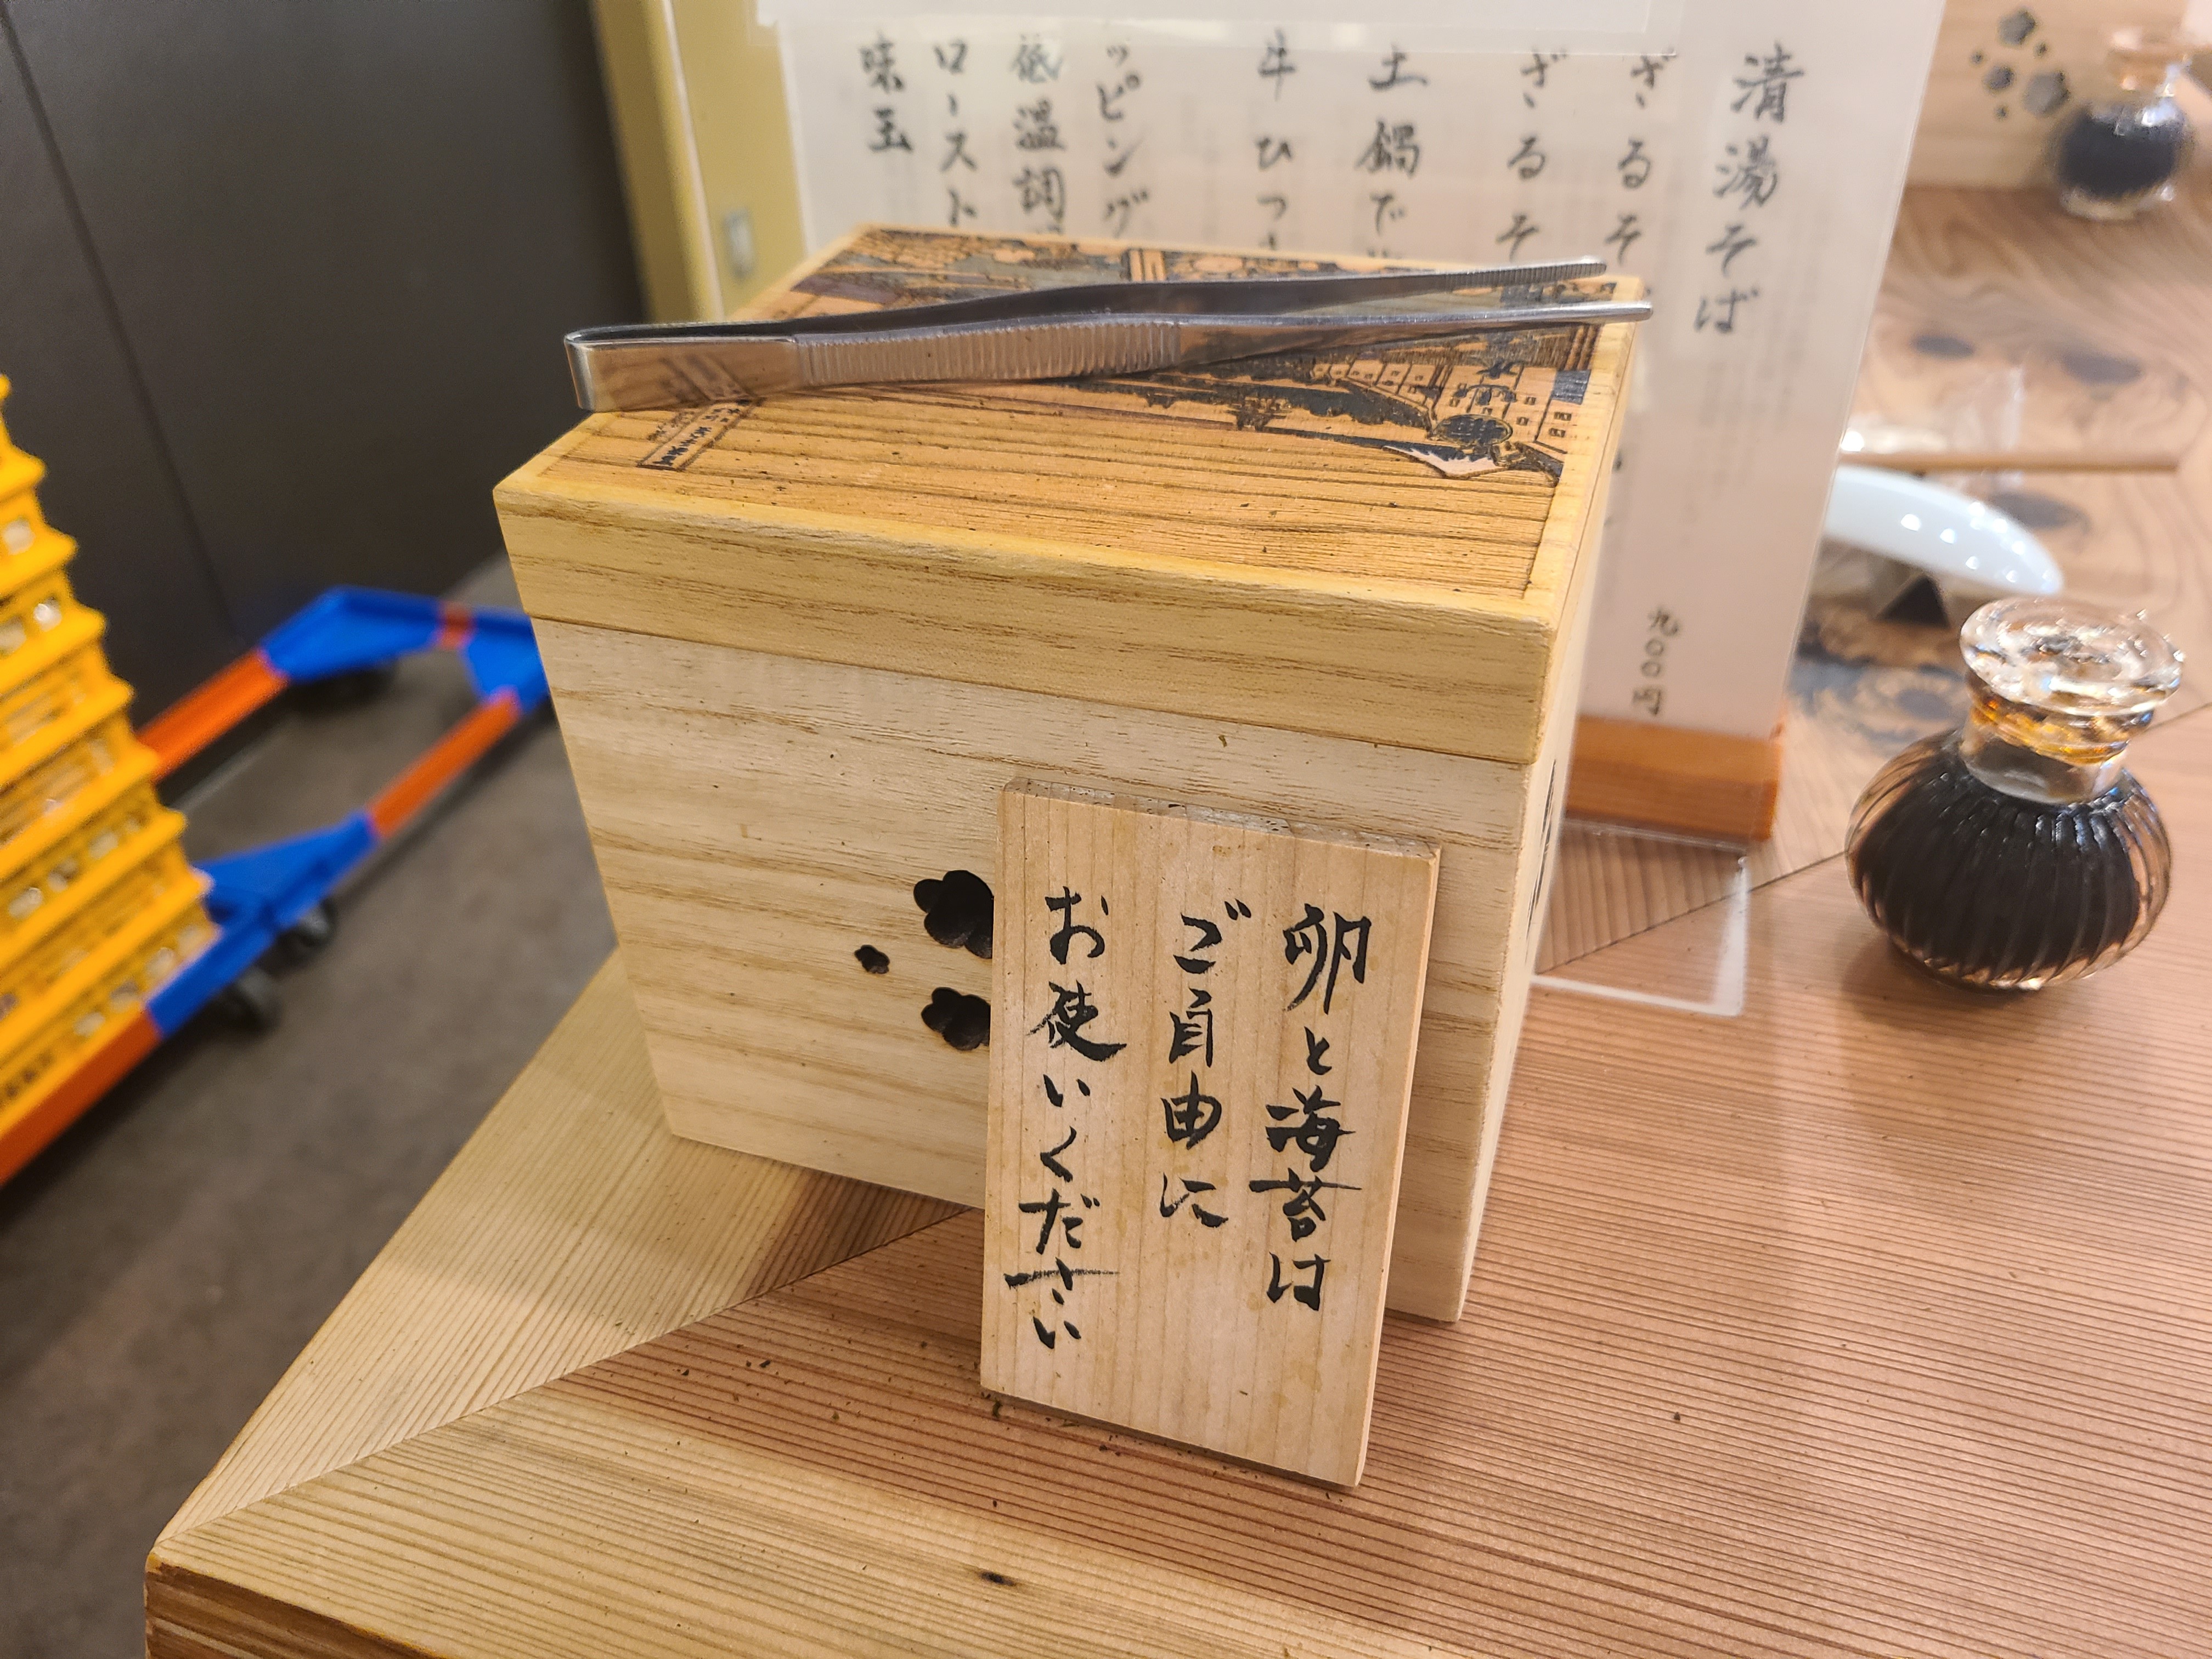 卵と海苔は
ご自由に
お使いください
清湯そば
九〇〇円
ざるそ
ざるそ
土鍋で
牛ひつ
ッピング
低温調
ロースト
味玉